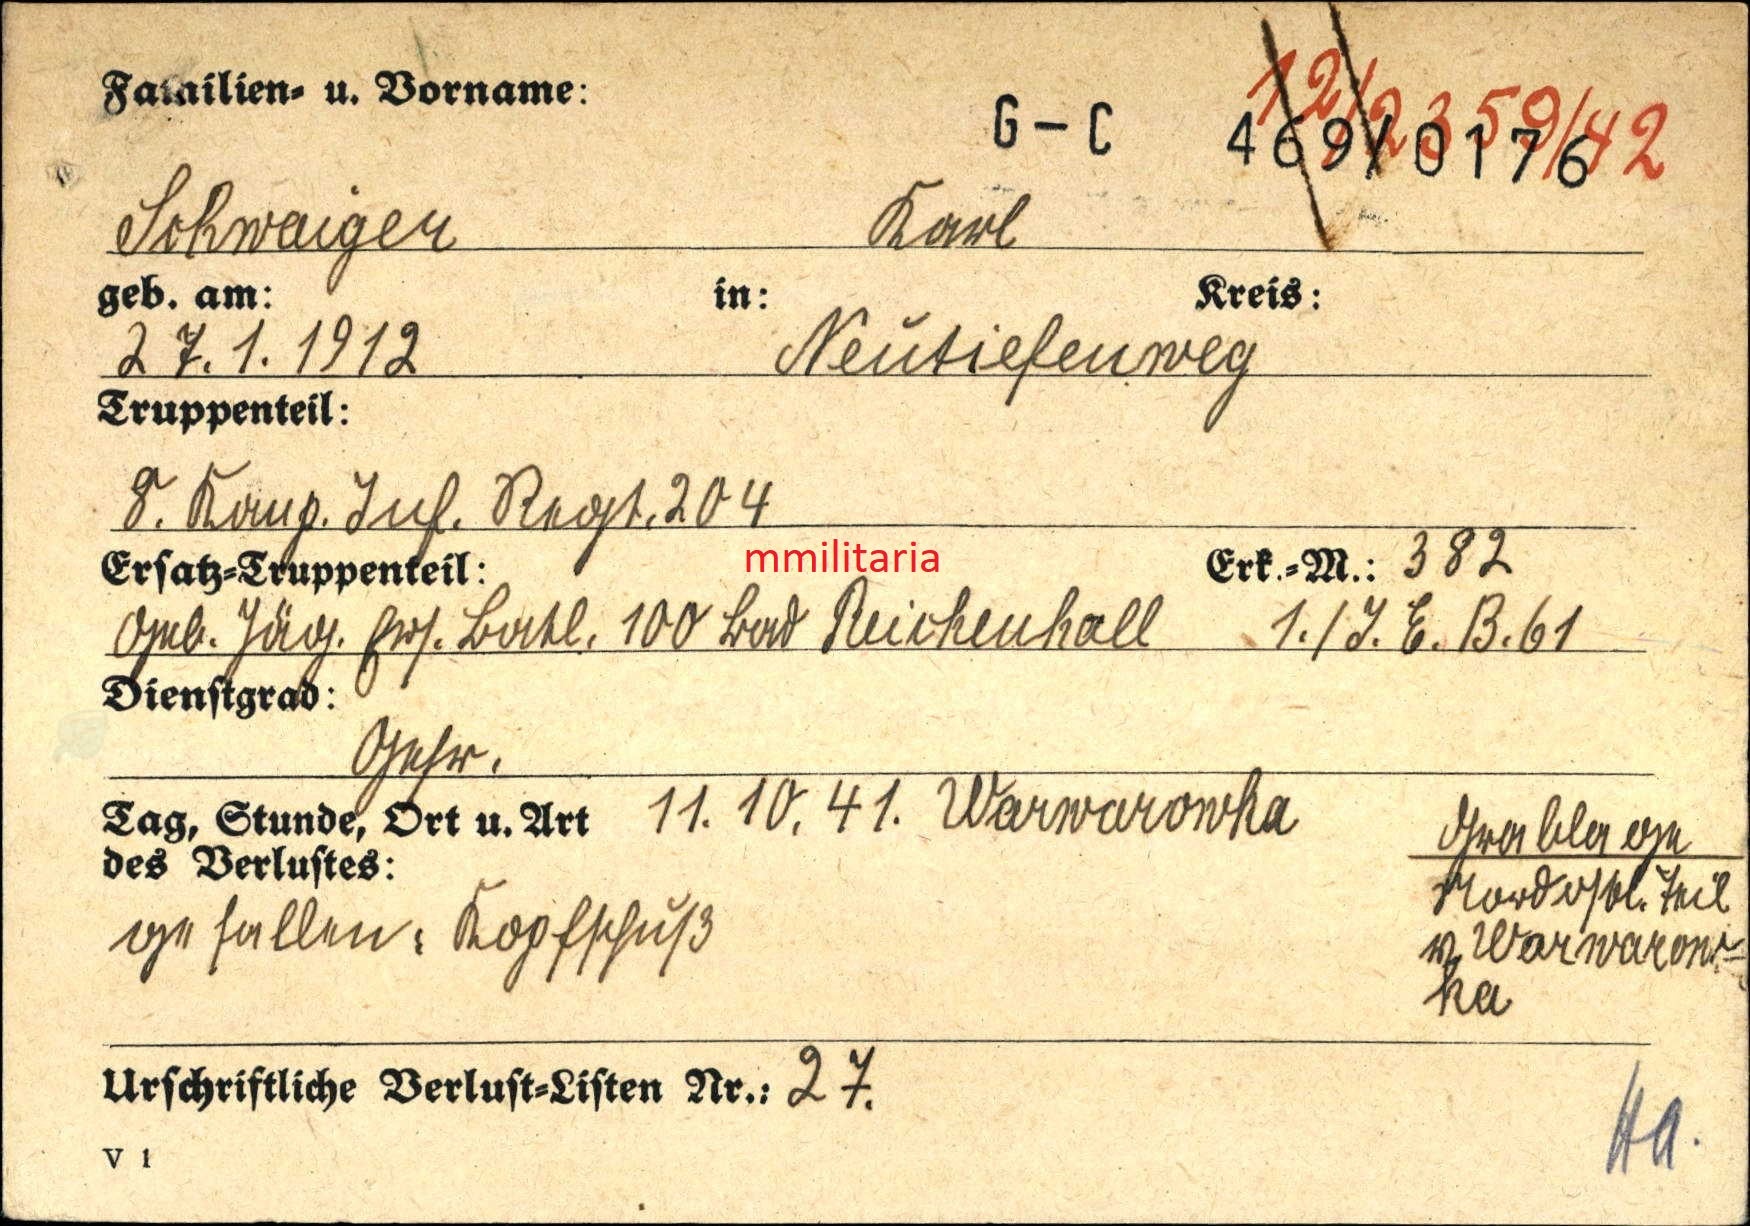 Familien- u. Vorname:
G-C 469/0176
12/2359/42
Schwaiger Karl
geb. am: in: Kreis:
27.1.1912 Neutiefenweg
Truppenteil:
8. Komp. Inf. Regt. 204
mmilitaria
Ersatz-Truppenteil: Erk.-M.: 382
Geb. Jäg. Ers. Batl. 100 Bad Reichenhall 1./J.E.B.61
Dienstgrad:
Gefr.
Tag, Stunde, Ort u. Art 11.10.41. Warwarowka
des Verlustes:
gefallen: Kopfschuß
Grablage
Nordöstl. Teil
v. Warwarow-
ka
Urschriftliche Verlust-Listen Nr.: 27.
V 1